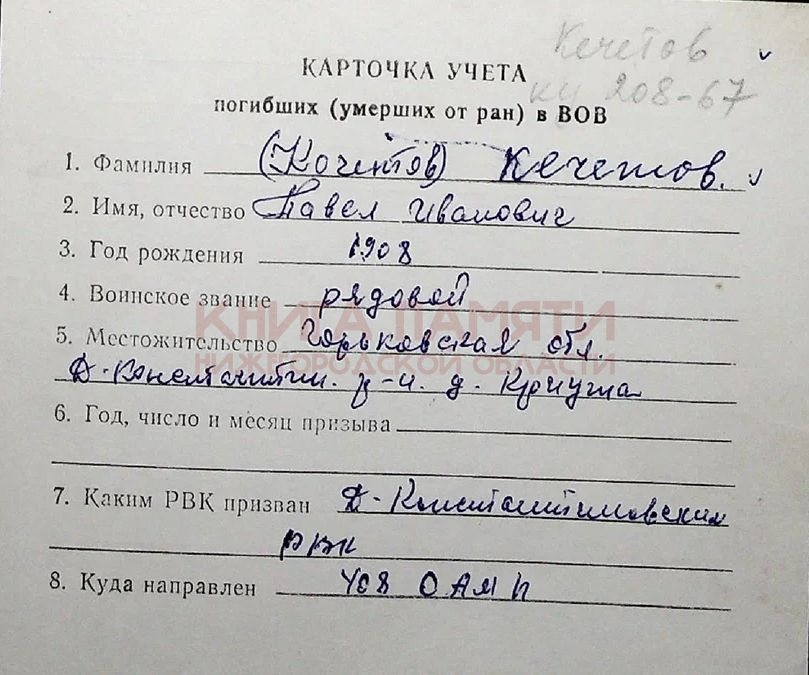 Кечетов
кн 208-67
КАРТОЧКА УЧЕТА
погибших (умерших от ран) в ВОВ
1. Фамилия (Кочетов) Кечетов.
2. Имя, отчество Павел Иванович
3. Год рождения 1908
4. Воинское звание рядовой
КНИГА ПАМЯТИ
НИЖЕГОРОДСКОЙ ОБЛАСТИ
5. Местожительство Горьковская обл.
Д-Константин. р-н. д. Криуша
6. Год, число и месяц призыва
7. Каким РВК призван Д-Константиновским
РВК
8. Куда направлен 408 ОАМП